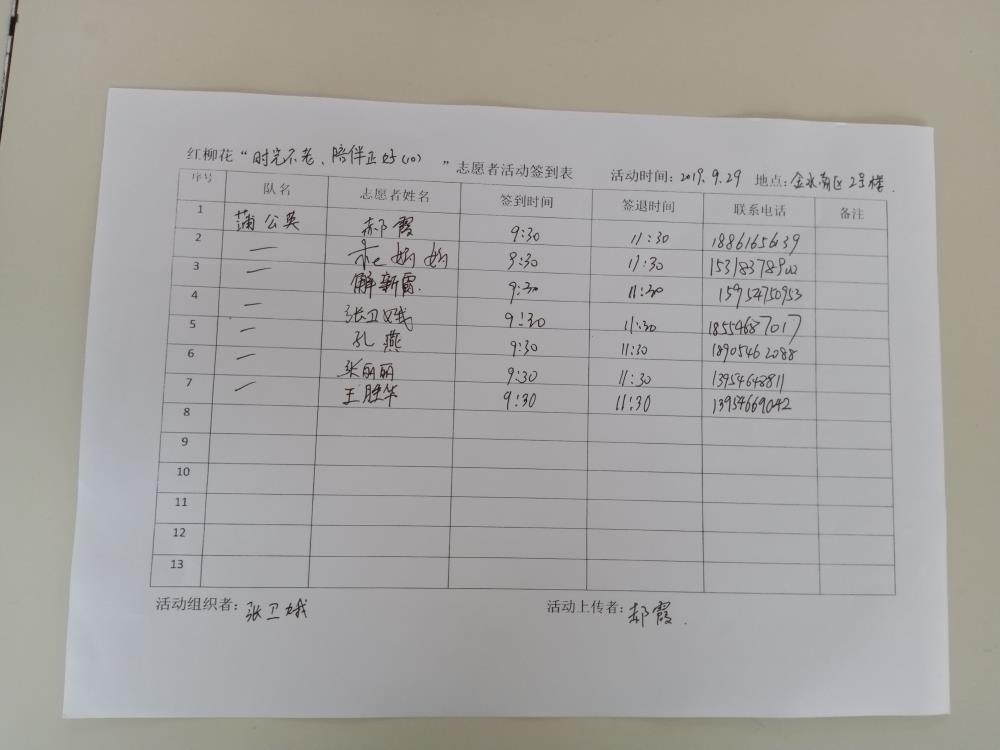 红柳花“时光不老、陪伴正好(10)”志愿者活动签到表 活动时间：2019.9.29 地点：金水南区2号楼.
序号 队名 志愿者姓名 签到时间 签退时间 联系电话 备注
1 蒲公英 郝霞 9:30 11:30 18861656139
2 — 杜娟娟 9:30 11:30
3 — 解新雷. 9:30 11:30 15954750953
4 — 张卫娥 9:30 11:30 18554687017
5 — 孔燕 9:30 11:30 18905462088
6 — 张丽丽 9:30 11:30 13954648811
7 — 王胜华 9:30 11:30 13954669042
8
9
10
11
12
13
活动组织者：张卫娥 活动上传者：郝霞.